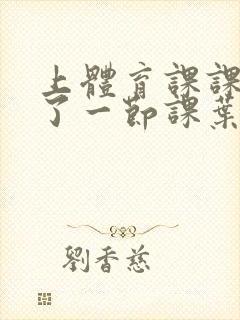 上體育課課
了一節課葉
劉香慈